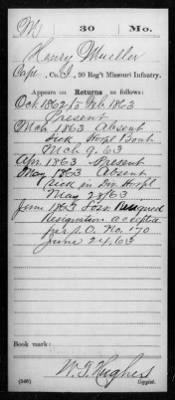 M | 30 | Mo.
Henry Mueller
Capt, Co. I, 30 Reg't Missouri Infantry.
Appears on Returns as follows:
Oct 1862 to Feb 1863
Present
Mch 1863 Absent
Sick Hospl Boat
Mch 9. 63
Apr 1863 Present
May 1863 Absent
Sick in Div Hospl
May 28/63
June 1863 Loss Resigned
Resignation accepted
per S.O. No. 170
June 24. 63
Book mark:
(546)
W. T. Hughes
Copyist.